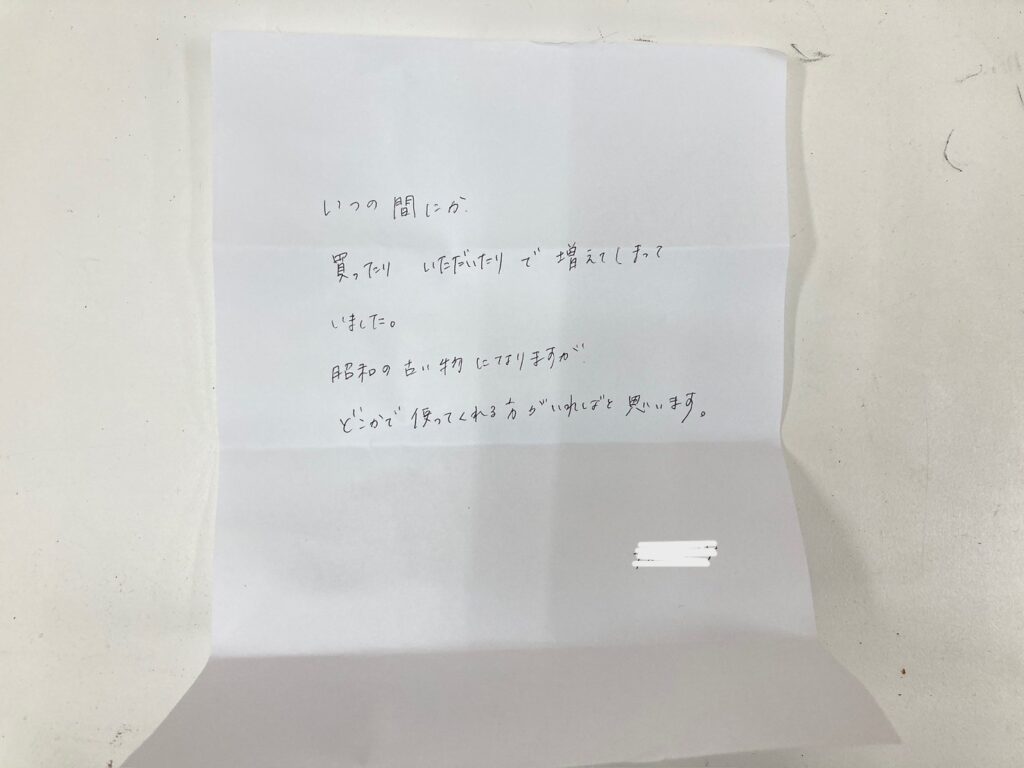 いつの間にか
買ったり いただいたりで 増えてしまって
いました。
昭和の古い物になりますが
どこかで 使ってくれる方がいればと思います。